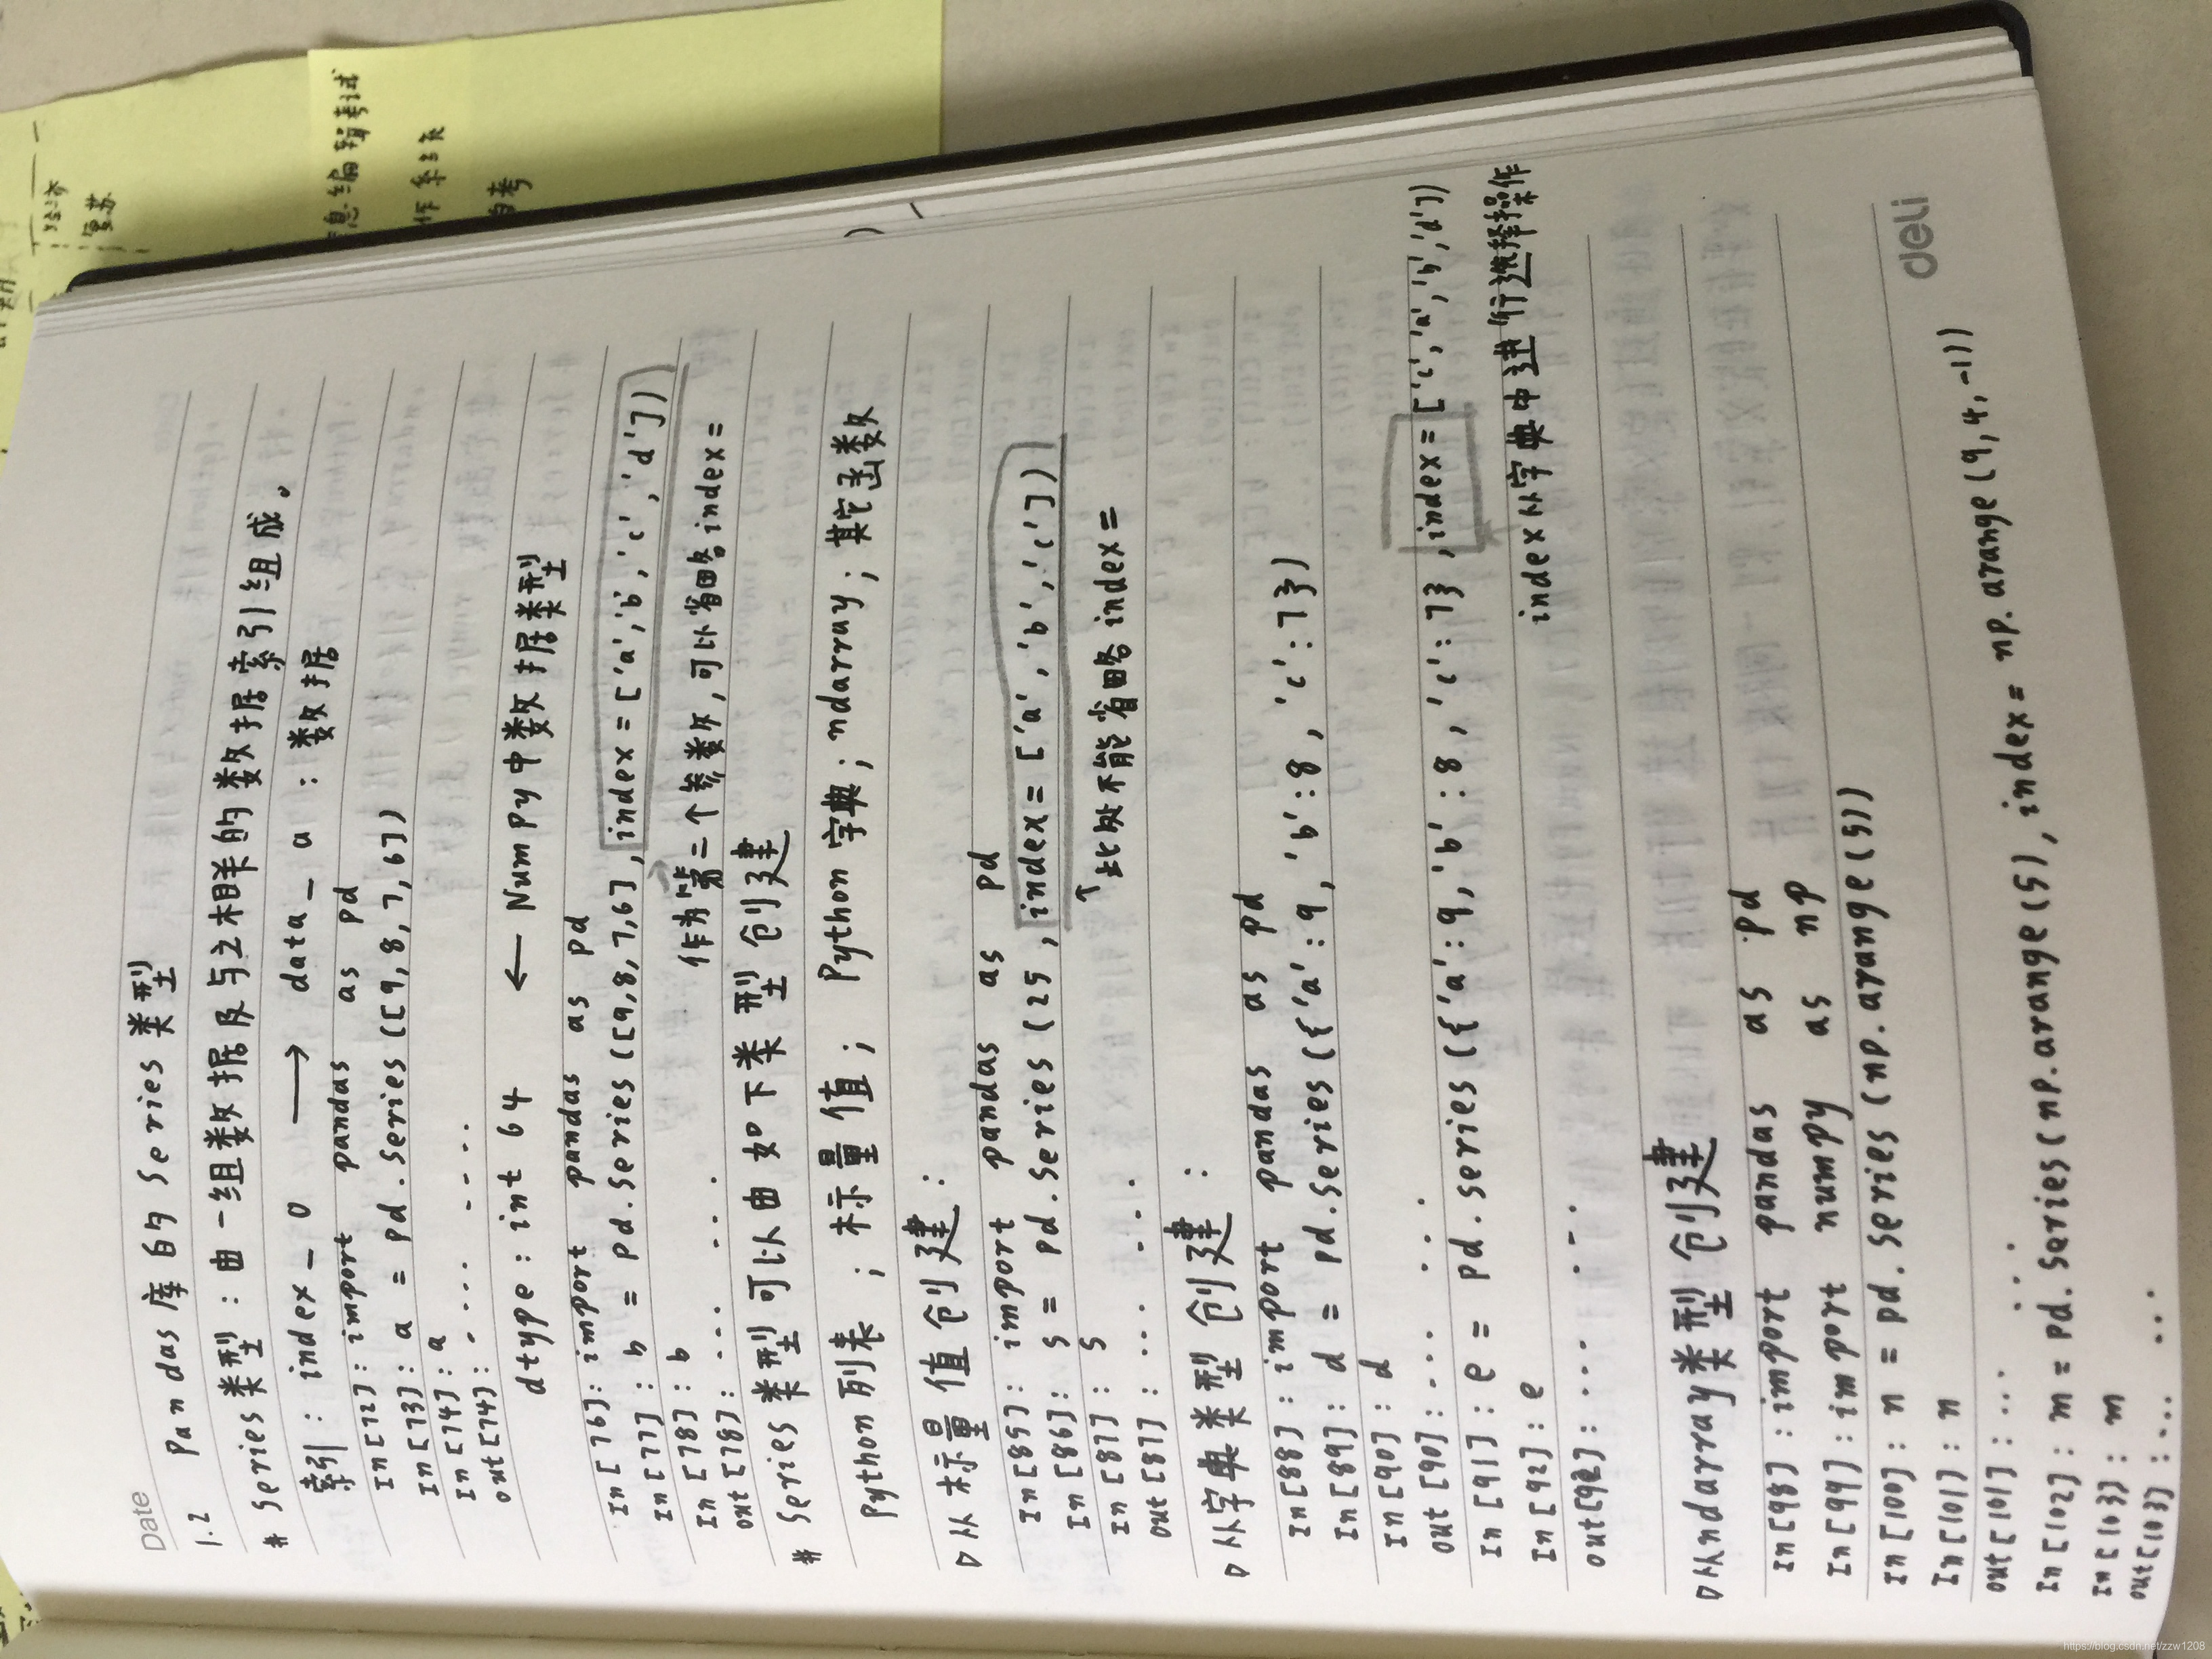 Date
1.2 Pandas库的Series类型
# Series类型：由一组数据及与之相关的数据索引组成。
索引：index_0 → data_a：数据
In[72]: import pandas as pd
In[73]: a = pd.Series([9,8,7,6])
In[74]: a
out[74]: .... ....
dtype: int 64 ← NumPy中数据类型
In[76]: import pandas as pd
In[77]: b = pd.Series([9,8,7,6],index=['a','b','c','d'])
In[78]: b 作为第二个参数,可以省略index=
out[78]: ... ...
# Series类型可以由如下类型创建
Python列表；标量值；Python字典；ndarray；其它函数
从标量值创建：
In[85]: import pandas as pd
In[86]: s = pd.Series(25,index=['a','b','c'])
In[87]: s ↑此处不能省略index=
out[87]: ... ...
从字典类型创建：
In[88]: import pandas as pd
In[89]: d = pd.Series({'a':9,'b':8,'c':7})
In[90]: d
out[90]: ... ...
In[91]: e = pd.Series({'a':9,'b':8,'c':7},index=['c','a','b','d'])
In[92]: e index从字典中进行选择操作
out[92]: ... ...
从ndarray类型创建
In[98]: import pandas as pd
In[99]: import numpy as np
In[100]: n = pd.Series(np.arange(5))
In[101]: n
out[101]: ... ...
In[102]: m = pd.Series(np.arange(5),index=np.arange(9,4,-1))
In[103]: m
out[103]: ... ...
deli
息编辑考试
作系统
自考
https://blog.csdn.net/zzw1208